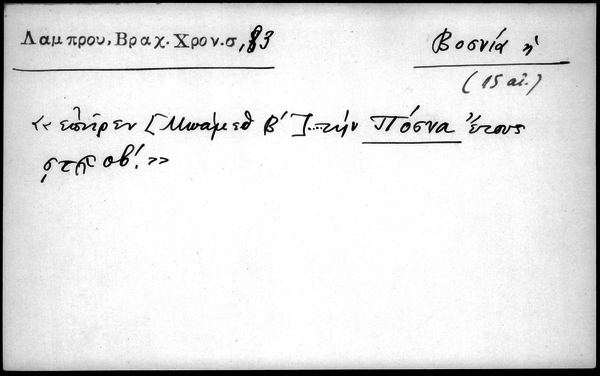 Λαμπρου, Βραχ. Χρον. σ, 83
Βοσνία ἡ
(15 αἰ.)
«ἐπῆρεν [Μωάμεθ Β΄]...τὴν Πόσνα ἔτους
οβ΄.»